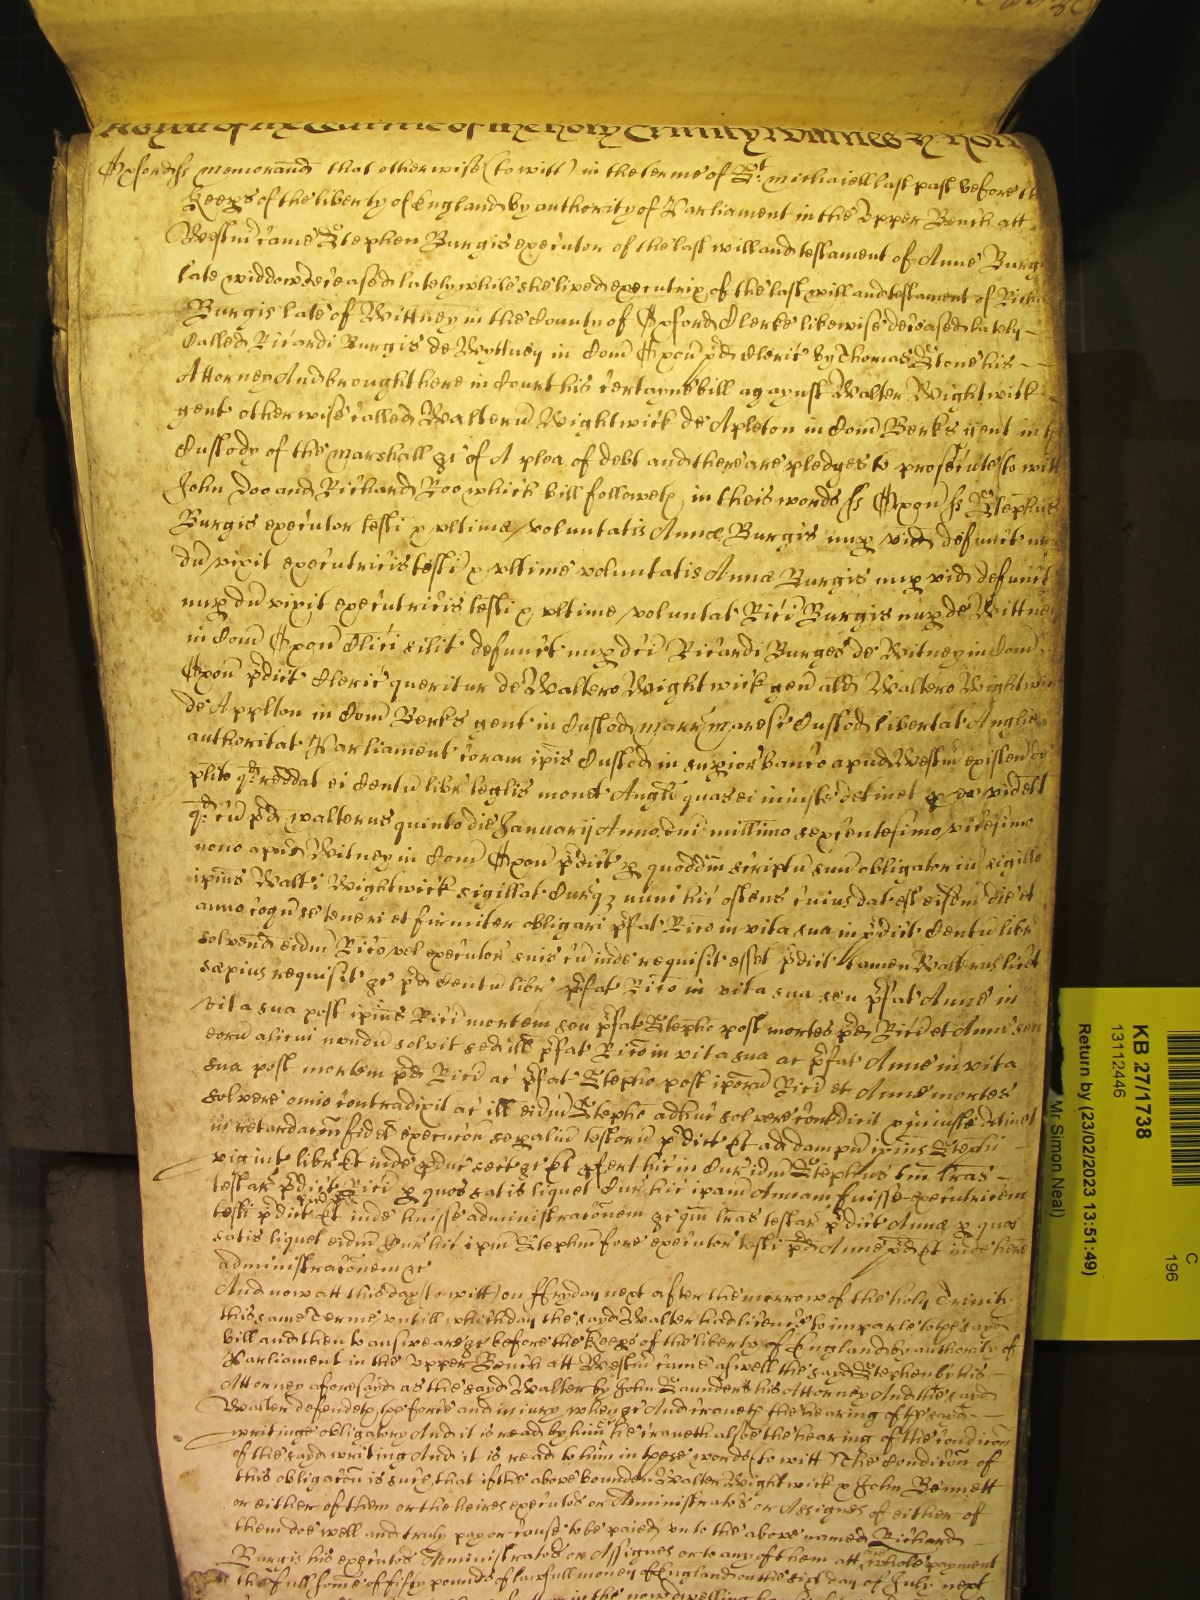 Oxford ss memorand that otherwise (to witt) in the terme of St. Michaiell last past before
Keeps of the liberty of England by authority of Parliament in the Upper Bench att
Westm came Stephen Burgis executor of the last will and testament of Anne Burg
late widdow deceased lately while she lived executrix of the last will and testament of Rich
Burgis late of Wittney in the County of Oxford Clerke likewise deceased lately
called Ricardi Burgis de Wyttney in Com Oxon pd Cleric by Thomas Stone his
Attorney And brought here in Court his certayne bill agaynst Walter Wightwick
gent otherwise called Walterū Wightwick de Apleton in Com Berks gent in
Custody of the Marshall &c of A plea of debt and there are pledges to prosecute to witt
John Doo and Richard Roo which bill followeth in theis words ss Oxon ss Stephus
Burgis executor testi & ultimæ voluntatis Annæ Burgis nup vid defunct nup
dū vixit executricis testi & ultime voluntatis Annæ Burgis nup vid defunct
nup dū vixit executricis testi & ultime voluntat Rici Burgis nup de Wittney
in Com Oxon Clici defunct nup dci Ricardi Burges de Witney in Com
Oxon pdict Cleric queritur de Waltero Wightwick gen als Waltero Wightwi
de Applton in Com Berks gent in Custod marr marese Custod libertat Anglie
authoritat Parliament coram ipis Custod in supior banco apud Westm existen de
plito qd reddat ei Centū libr leglis monet Angli quas ei iniuste detinet videlt
qd cū pd Walterus quinto die Januarij Anno dni millimo sexcentesimo vicesimo
nono apud Witney in Com Oxon pdict p quoddm scriptū suū obligatoriū sigillo
ipius Walti Wightwick sigillat Curq3 nunc hic ostens cuius dat est eisdm die et
anno cogn se teneri et firmiter obligari pfat Rico in vita sua in pdict Centū libr
solvend eidm Rico vel executor suis cū inde requisit esset pdict tamen Walterus licet
sæpius requisit &c pd Centū libr pfat Rico in vita sua seu pfat Anne in
vita sua post ipius Rici mortem seu pfat Stepho post mortes pd Rici et Anne seu
eorū alicui nondū solvit sed ill pfat Rico in vita sua ac pfat Anne in vita
sua post mortem pd Rici ac pfat Stepho post iporū Rici et Anne mortes
solvere omio contradixit ac ill eidm Stepho adhuc solvere contradicit & iniuste detinet
in retardacon fidet execucon sepaliū testorū pdict Et ad dampn ipius Stephi
vigint libr Et inde pduc sect &c Et pfert hic in Cur idm Stephus tm lras
testar pdict Rici p quos satis liquet Cur hic ipam Annam fuisse Executricem
testi pdict Et inde huisse administracōnem &c qm lras testar pdict Annæ p quas
satis liquet eidm Cur hic ipm Stephm fore executor testi pd Anne pd Et inde here
administracōnem &c
And now att this day (to witt) on ffryday next after the morrow of the holy Trinit
this same Terme untill which day the sayd Walter had licence to imparle to the sayd
bill and then to answeare &c before the Keeps of the liberty of England by authority of
Parliament in the Upper Bench att Westm came aswell the sayd Stephen by his
Attorney aforesayd as the sayd Walter by John Saunders his Attorney And the sayd
Walter defendeth the force and iniury when &c And craveth the hearing of the sayd
writinge obligatory And it is read by him he craveth alsoe the hearing of the Condicon
of the sayd writing And it is read to him in these words (to witt) The Condicon of
this obligacon is such that if the above bounden Walter Wightwick & John Bennett
or either of them or the heires executors or Administrators or Assignes of either of
them doe well and truly pay or cause to be paied unto the above named Richard
Burgis his executors Administrators or Assignes or to any of them att whole payment
the full some of fifty pounds of lawfull money of England on the sixt day of July next
in the now dwelling
KB 27/1738
13112446
Return by (23/02/2023 13:51:49)
Mr Simon Neal)
C
196